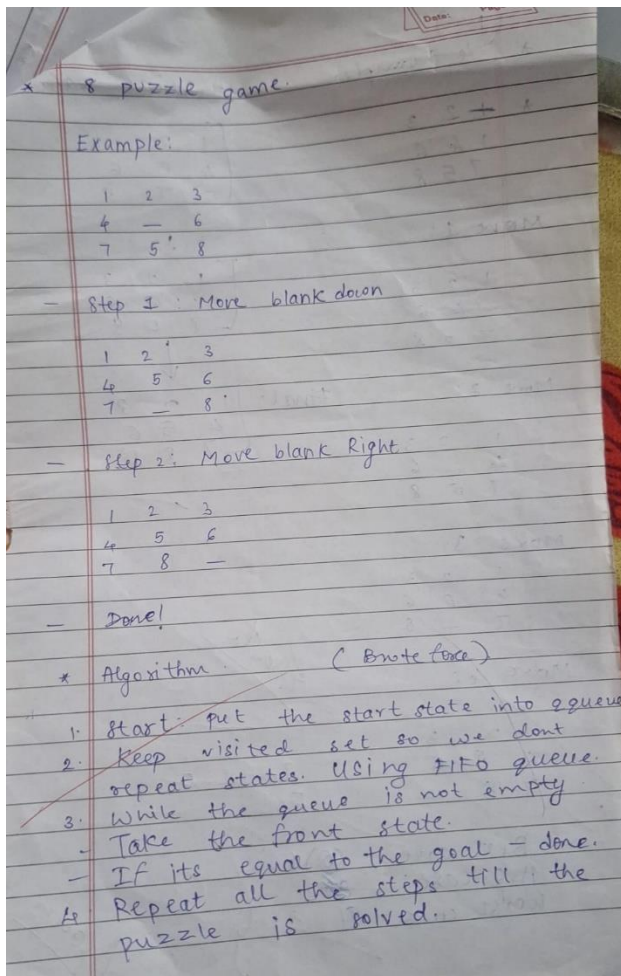 Date:
* 8 puzzle game.
Example:
1 2 3
4 — 6
7 5 8
— Step 1 : Move blank down
1 2 3
4 5 6
7 — 8
— Step 2: Move blank Right
1 2 3
4 5 6
7 8 —
— Done!
* Algorithm (Brute force)
1. Start: put the start state into a queue
2. Keep visited set so we dont
repeat states. Using FIFO queue.
3. While the queue is not empty
- Take the front state.
— If its equal to the goal - done.
4. Repeat all the steps till the
puzzle is solved.